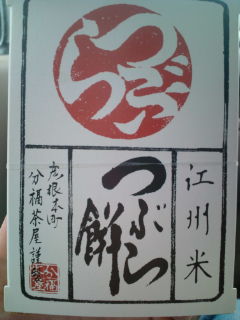 つぶら
江州米
つぶら餅
彦根本町
分福茶屋謹製